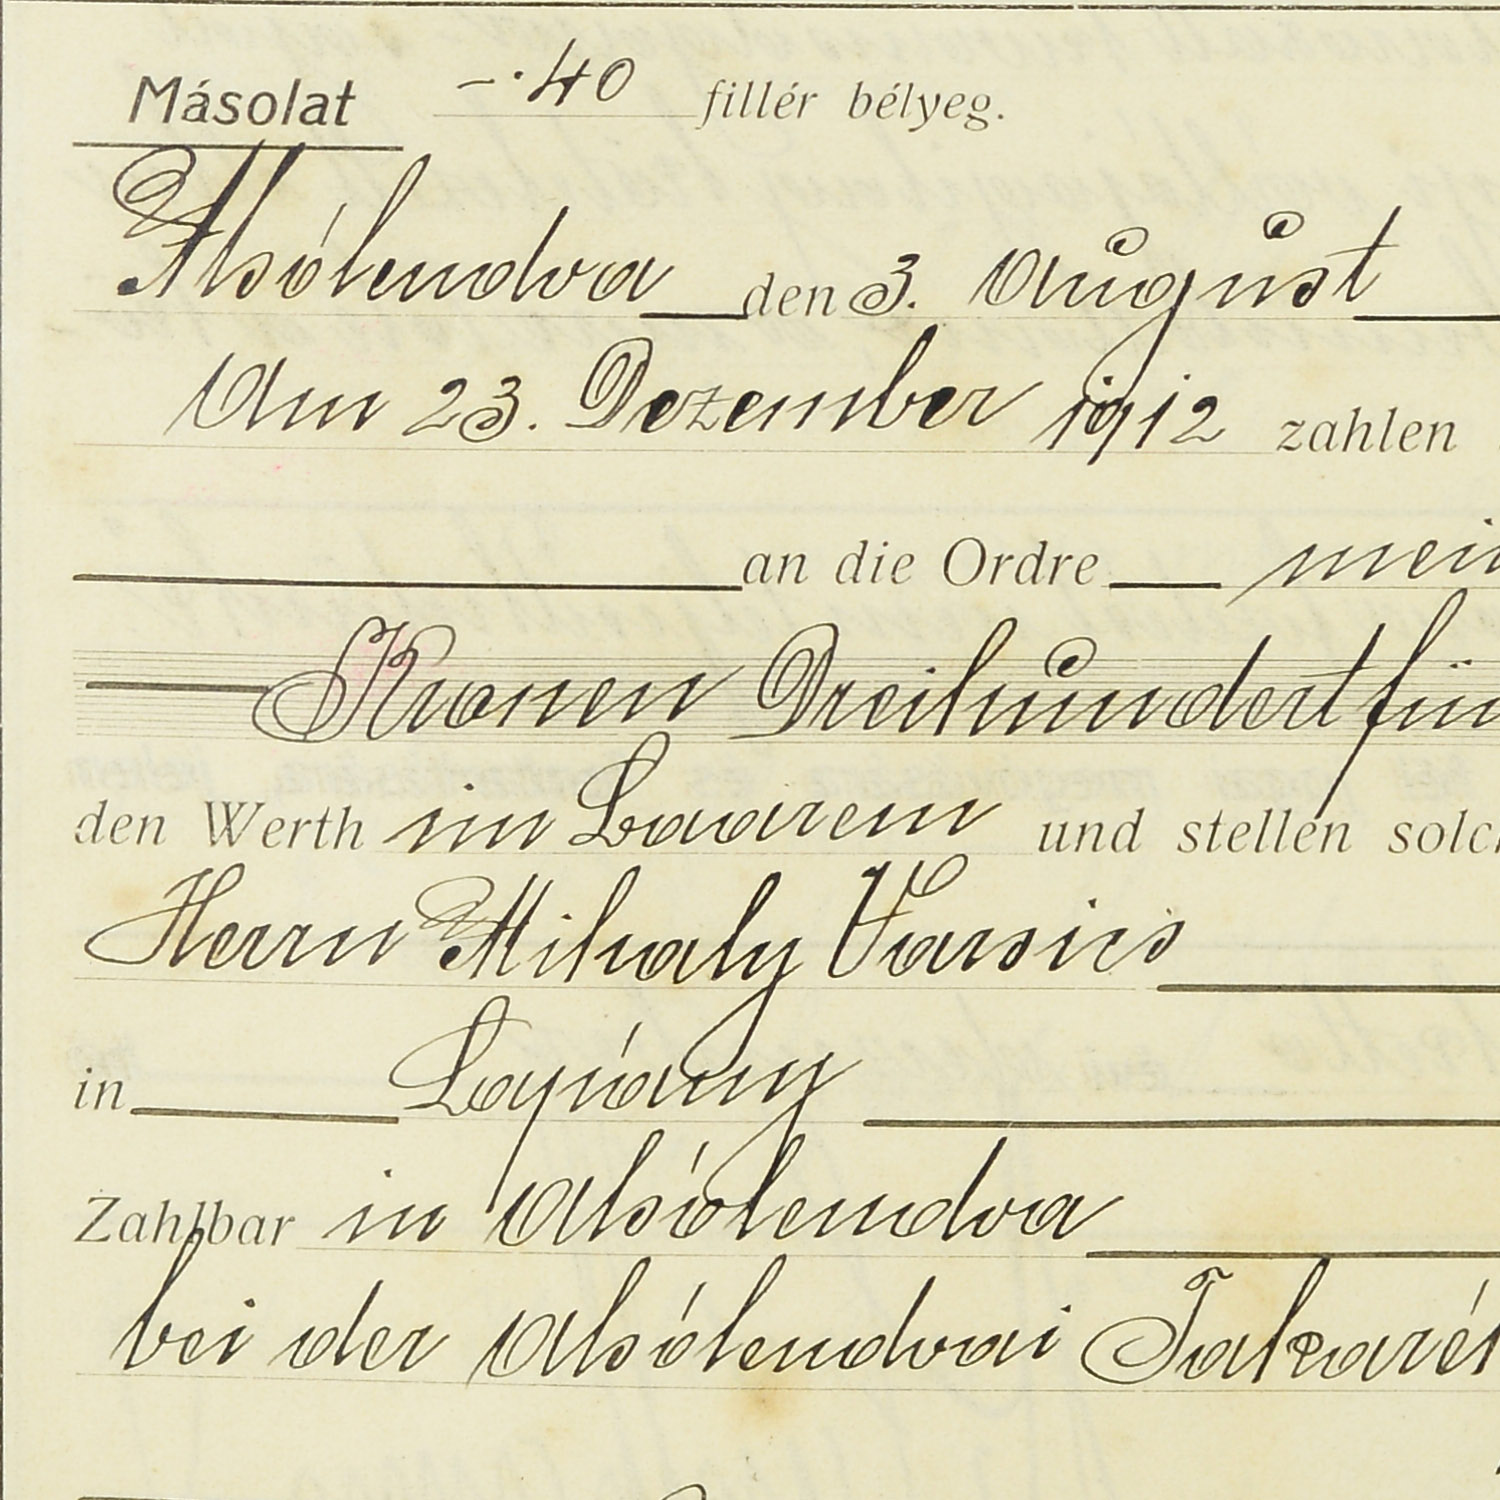 Másolat —.40 fillér bélyeg.
Alsólendva den 3. August
Am 23. Dezember 1912 zahlen
an die Ordre mein
Kronen Dreihundertfün
den Werth im Baarem und stellen solch
Herrn Mihaly Varsics
in Lapány
Zahlbar in Alsólendva
bei der Alsólendvai Takarék